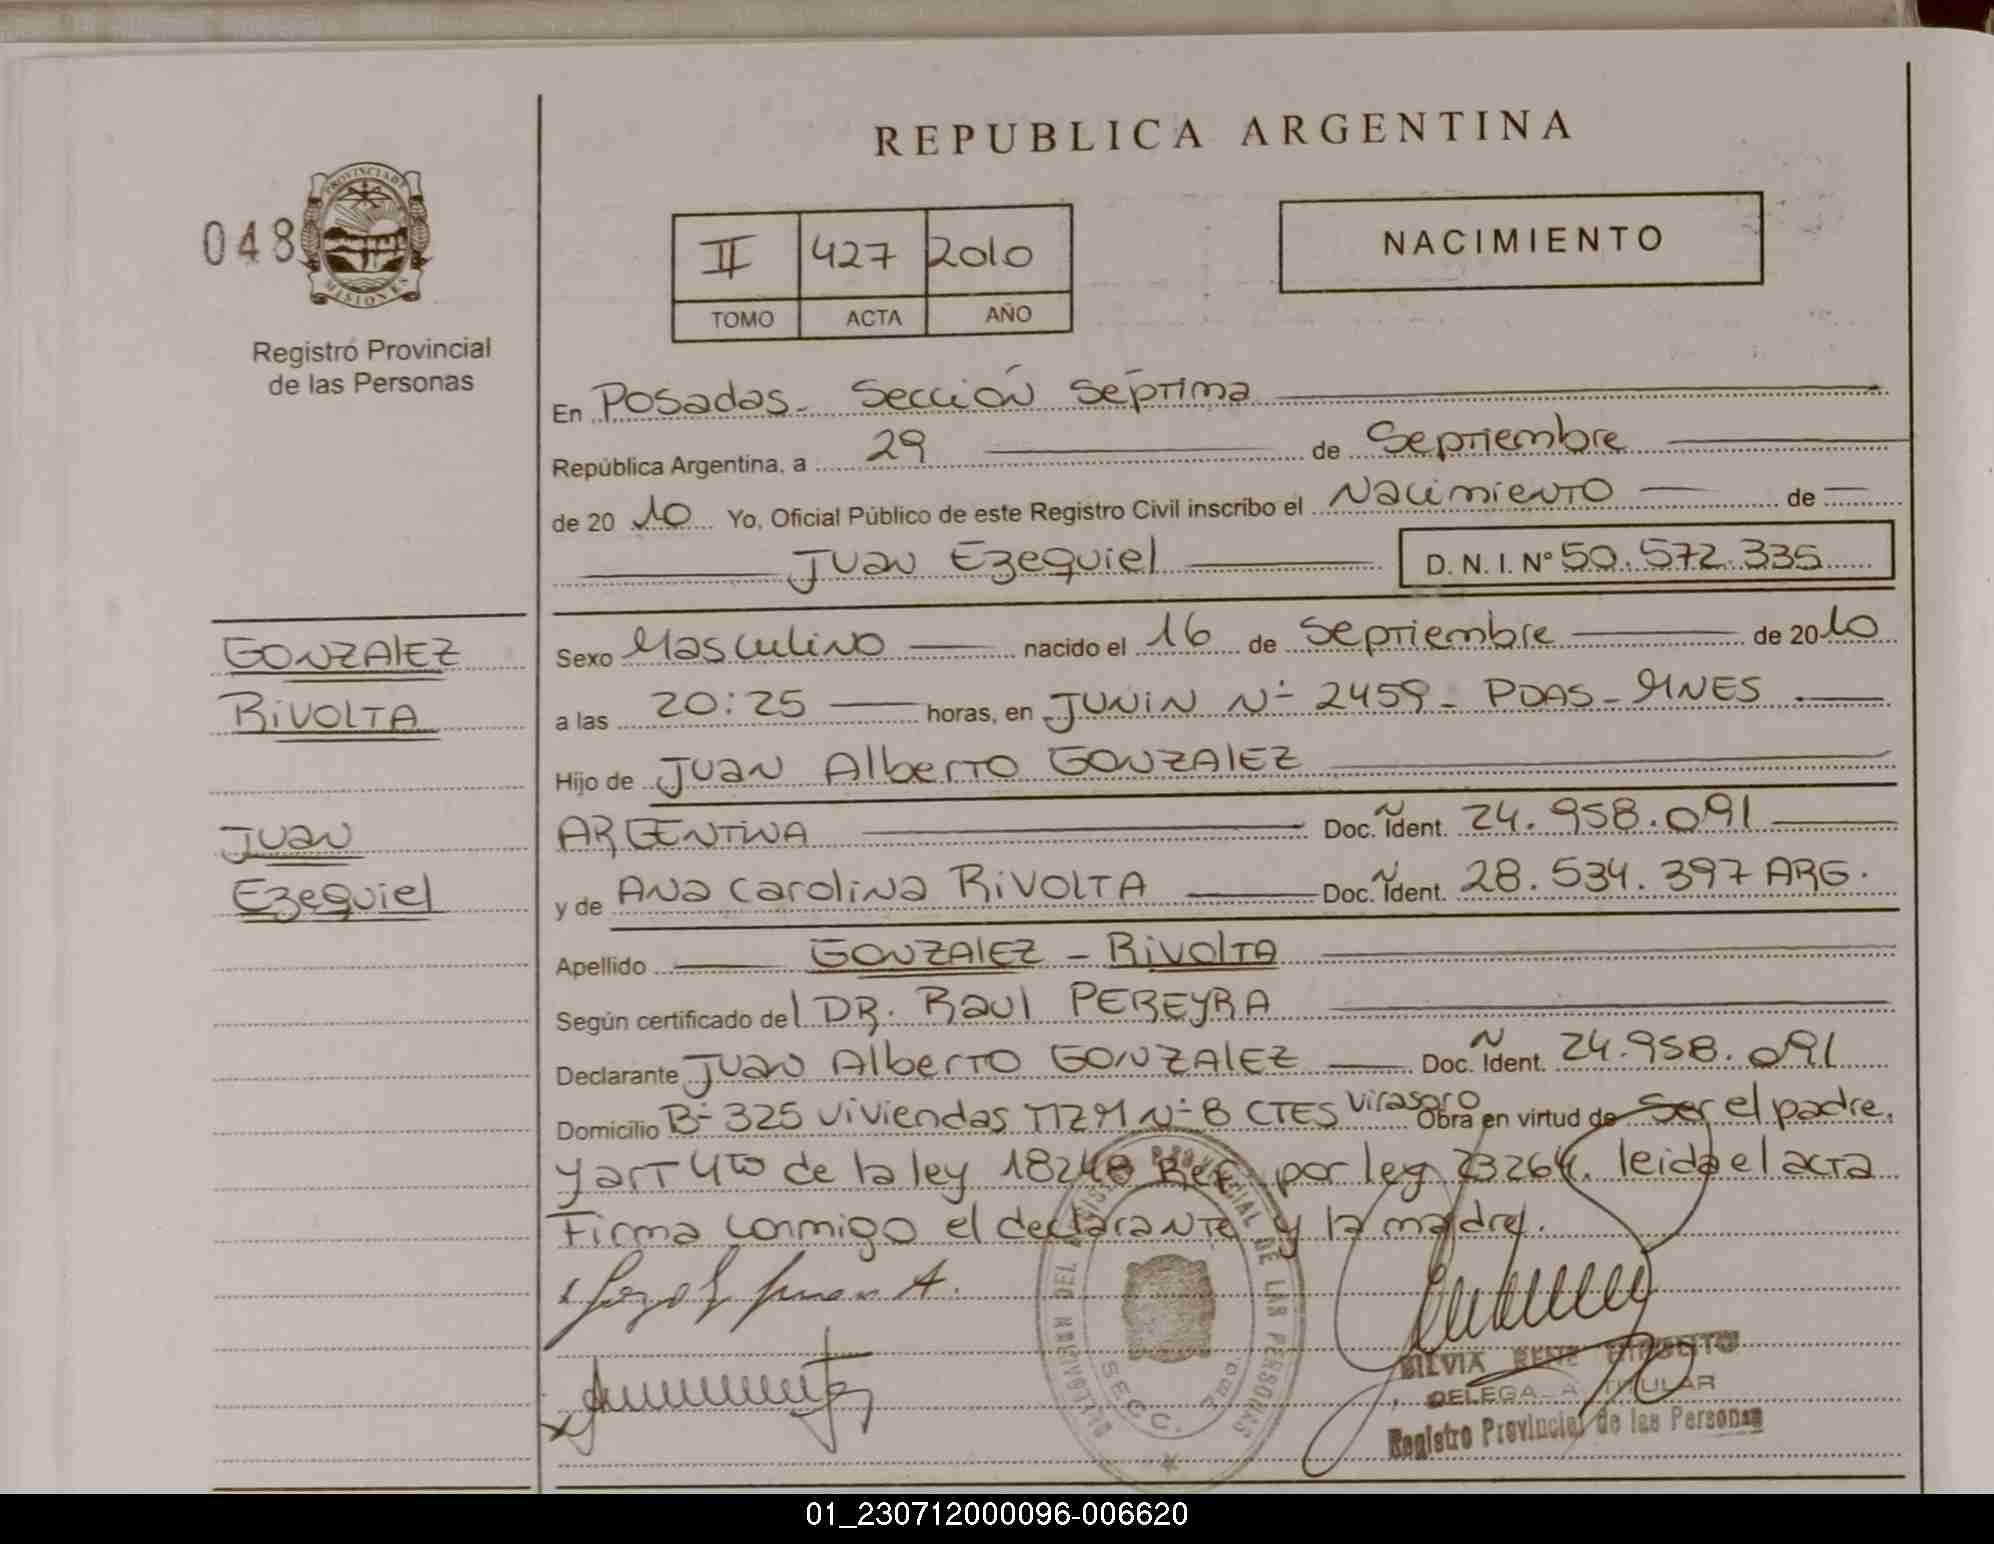 REPUBLICA ARGENTINA
048
PROVINCIA DE
MISIONES
Registro Provincial
de las Personas
II 427 2010
TOMO ACTA AÑO
NACIMIENTO
En Posadas - Sección Séptima
República Argentina, a 29 de Septiembre
de 20 10 Yo, Oficial Público de este Registro Civil inscribo el Nacimiento de
Juan Ezequiel D. N. I. Nº 50.572.335
GONZALEZ
RIVOLTA
Juan
Ezequiel
Sexo Masculino nacido el 16 de Septiembre de 2010
a las 20:25 horas, en JUNIN Nº 2459 - PDAS - MNES
Hijo de Juan Alberto GONZALEZ
ARGENTINA Doc. Ident. 24.958.091
y de Ana Carolina RIVOLTA Doc. Ident. 28.534.397 ARG.
Apellido GONZALEZ - RIVOLTA
Según certificado del DR. Raul PEREYRA
Declarante Juan Alberto GONZALEZ Doc. Ident. 24.958.091
Domicilio Bº 325 viviendas Nº 8 CTES Virasoro Obra en virtud de ser el padre,
y art 4to de la ley 18248 Ref por ley 23264. leida el acta
Firma conmigo el declarante y la madre.
DEL REGISTRO PROVINCIAL DE LAS PERSONAS
SECC. 7ma.
SILVIA
DELEGADA TITULAR
Registro Provincial de las Personas
01_230712000096-006620